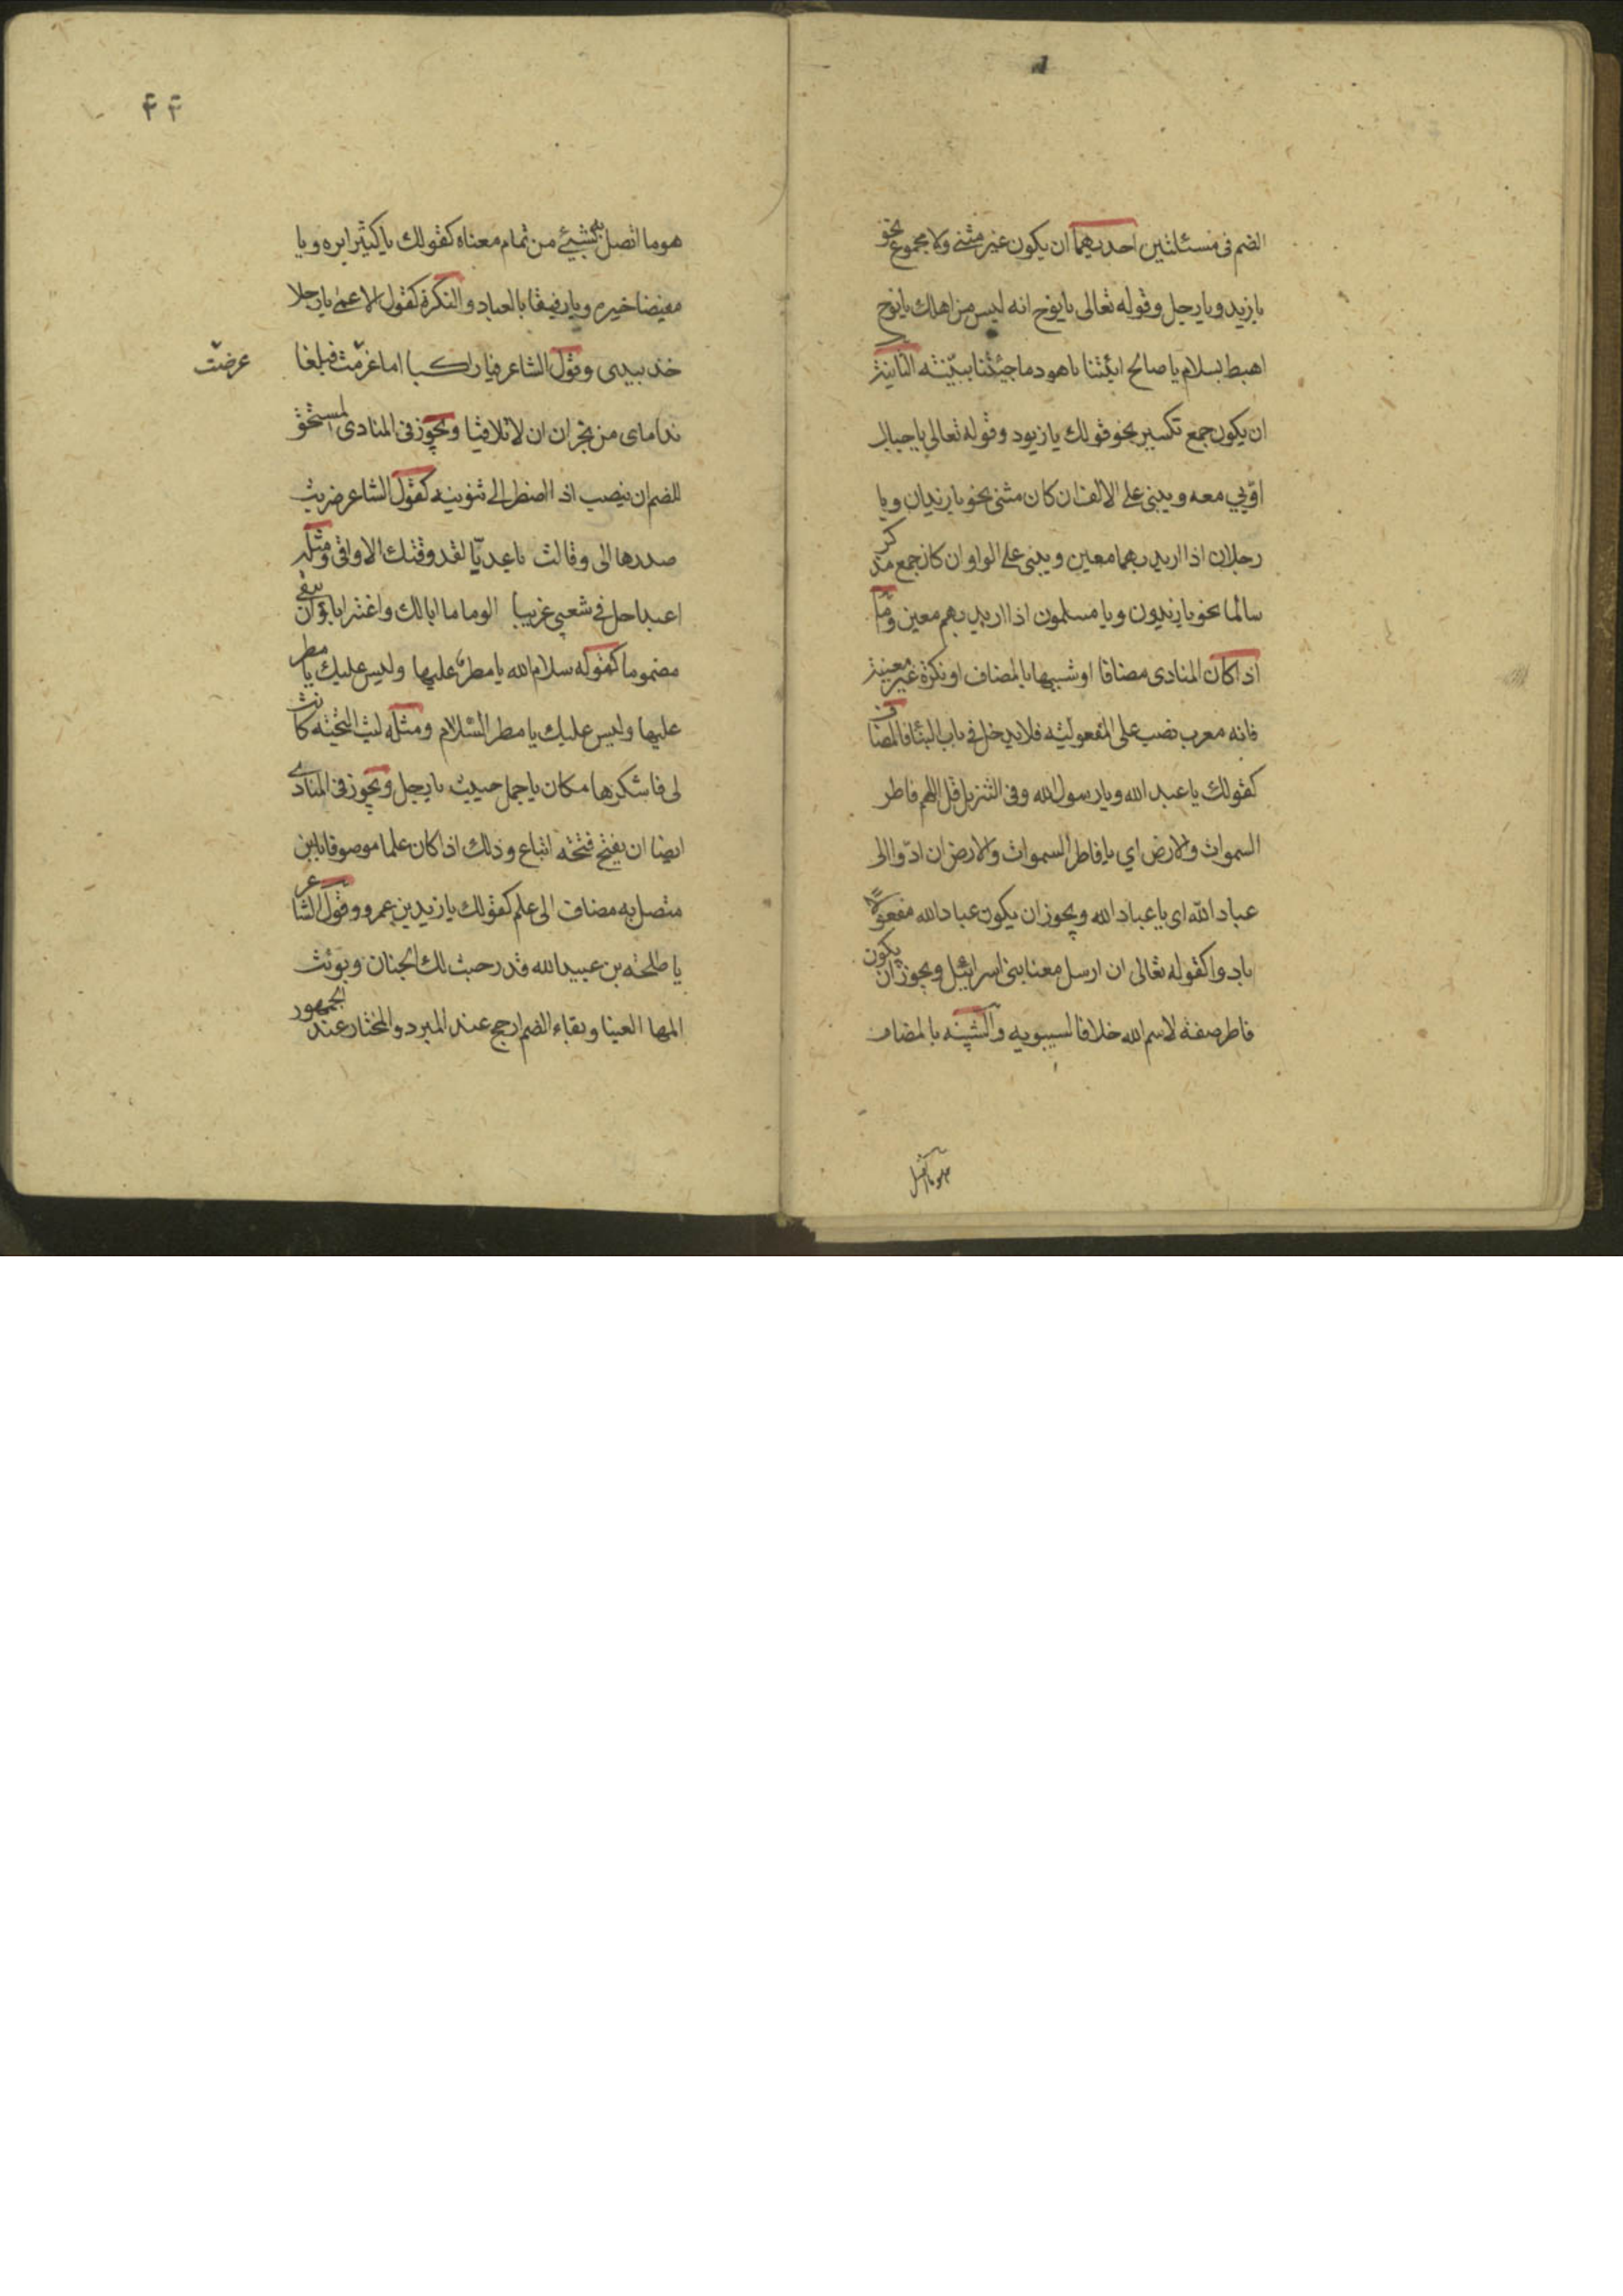 الضم فى مسئلتين احديهما ان يكون غير مثنى ولا مجموع نحو
يا زيد ويا رجل وقوله تعالى يا نوح انه ليس من اهلك يا نوح
اهبط بسلام يا صالح ائتنا يا هود ما جئتنا ببينته الثانية
ان يكون جمع تكسير نحو قولك يا زيود وقوله تعالى يا جبال
اوبي معه ويبنى على الالف ان كان مثنى نحو يا زيدان ويا
رجلان اذا اريد بهما معين ويبنى على الواو ان كان جمع مذكر
سالما نحو يا زيدون ويا مسلمون اذا اريد بهم معين وما
اذا كان المنادى مضافا او شبيها بالمضاف او نكرة غير معينة
فانه معرب نصب على المفعولية فلا يدخل فى باب البنا فالمضاف
كقولك يا عبد الله ويا رسول الله وفى التنزيل قل اللهم فاطر
السموات والارض اي يا فاطر السموات والارض ان ادوا الى
عباد الله اى يا عباد الله ويجوز ان يكون عباد الله مفعولا
بادوا كقوله تعالى ان ارسل معنا بنى اسرائيل ويجوز ان يكون
فاطر صفة لاسم الله خلافا لسيبويه والشبيه بالمضاف
هو ما اتصل
۴۴
هو ما اتصل به شيئ من تمام معناه كقولك يا كثيرا بره ويا
مفيضا خيره ويا رفيقا بالعباد والنكرة كقول الاعمى يا رجلا
خذ بيدى وقول الشاعر فيا راكبا اما غرمت فبلغا
عرضت
نداماى من نجران ان لا تلاقيا ويجوز فى المنادى المستحق
للضم ان ينصب اذا اضطر الى تنوينه كقول الشاعر ضربت
صدرها الى وقالت يا عديّا لقد وقتك الاواقى ومثله
اعبدا حل فى شعبى غريبا الوما ما ابالك واغترابا وان يبقى
مضموما كقوله سلام الله يا مطر عليها وليس عليك يا مطر
عليها وليس عليك يا مطر السلام ومثله ليت التحيته كانت
لى فاشكرها مكان يا جمل حييت يا رجل ويجوز فى المنادى
ايضا ان يفتح فتحة اتباع وذلك اذا كان علما موصوفا بابن
متصل به مضاف الى علم كقولك يا زيد بن عمرو وقول الشاعر
يا طلحة بن عبيد الله قد رحبت لك الجنان وبوئت
المها العينا وبقاء الضم ارجح عند المبرد والمختار عند الجمهور